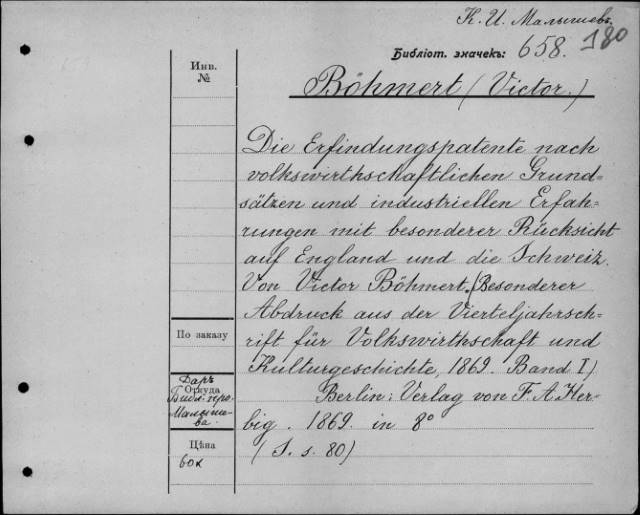 К. И. Малышевъ
180
Библіот. значекъ: 658.
Инв.
№
Böhmert (Victor.)
Die Erfindungspatente nach
volkswirthschaftlichen Grund=
sätzen und industriellen Erfah-
rungen mit besonderer Rücksicht
auf England und die Schweiz.
Von Victor Böhmert. (Besonderer
Abdruck aus der Vierteljahrsch-
rift für Volkswirthschaft und
Kulturgeschichte, 1869. Band I)
Berlin: Verlag von F. A. Her-
big. 1869. in 8°
(S. s. 80)
По заказу
Даръ
Откуда
Библ. про.
Малыше-
ва.
Цѣна
60к